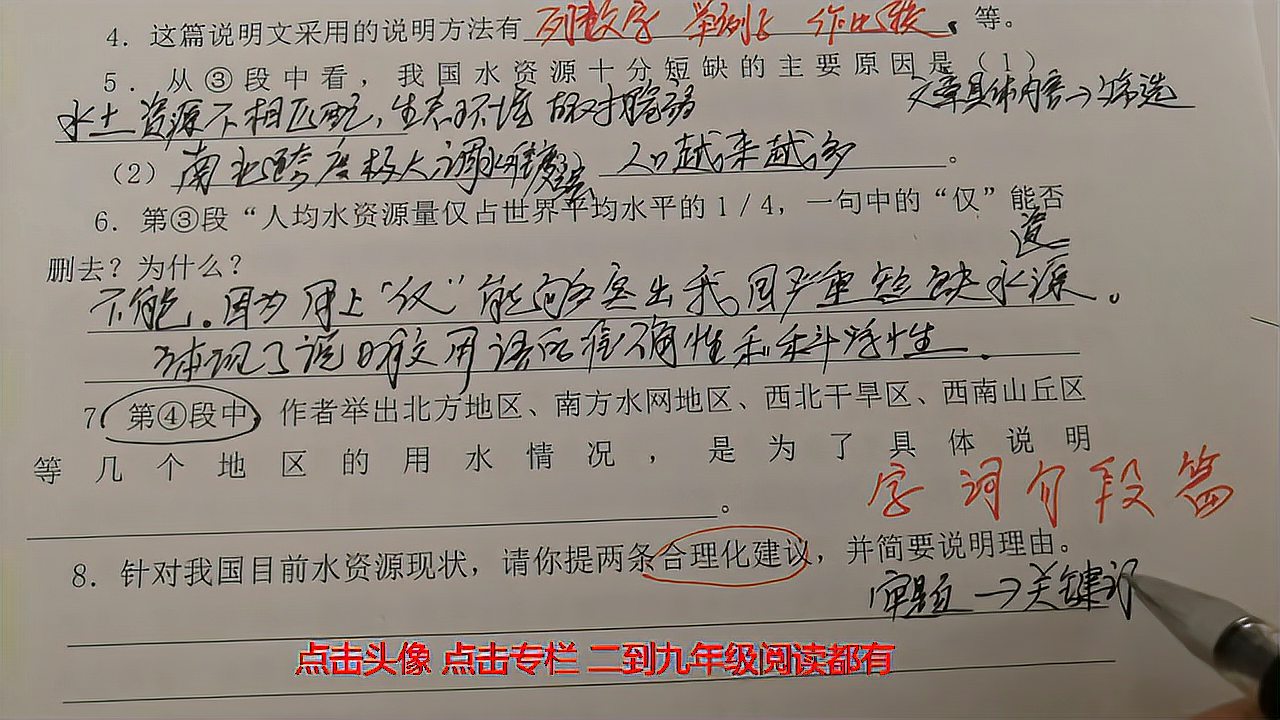 4. 这篇说明文采用的说明方法有 列数字 举例子 作比较 等。
5. 从③段中看，我国水资源十分短缺的主要原因是（1）
文章具体内容→筛选
水土资源不相匹配，生态环境相对脆弱
（2）南北跨度极大，调水难度 人口越来越多。
6. 第③段“人均水资源量仅占世界平均水平的1/4，一句中的“仅”能否
删去？为什么？
不能。因为用上“仅”能够突出我国严重短缺水源。
体现了说明文用语的准确性和科学性。
7 第④段中，作者举出北方地区、南方水网地区、西北干旱区、西南山丘区
等几个地区的用水情况，是为了具体说明
。
字 词 句 段 篇
8. 针对我国目前水资源现状，请你提两条合理化建议，并简要说明理由。
审题→关键词
点击头像 点击专栏 二到九年级阅读都有